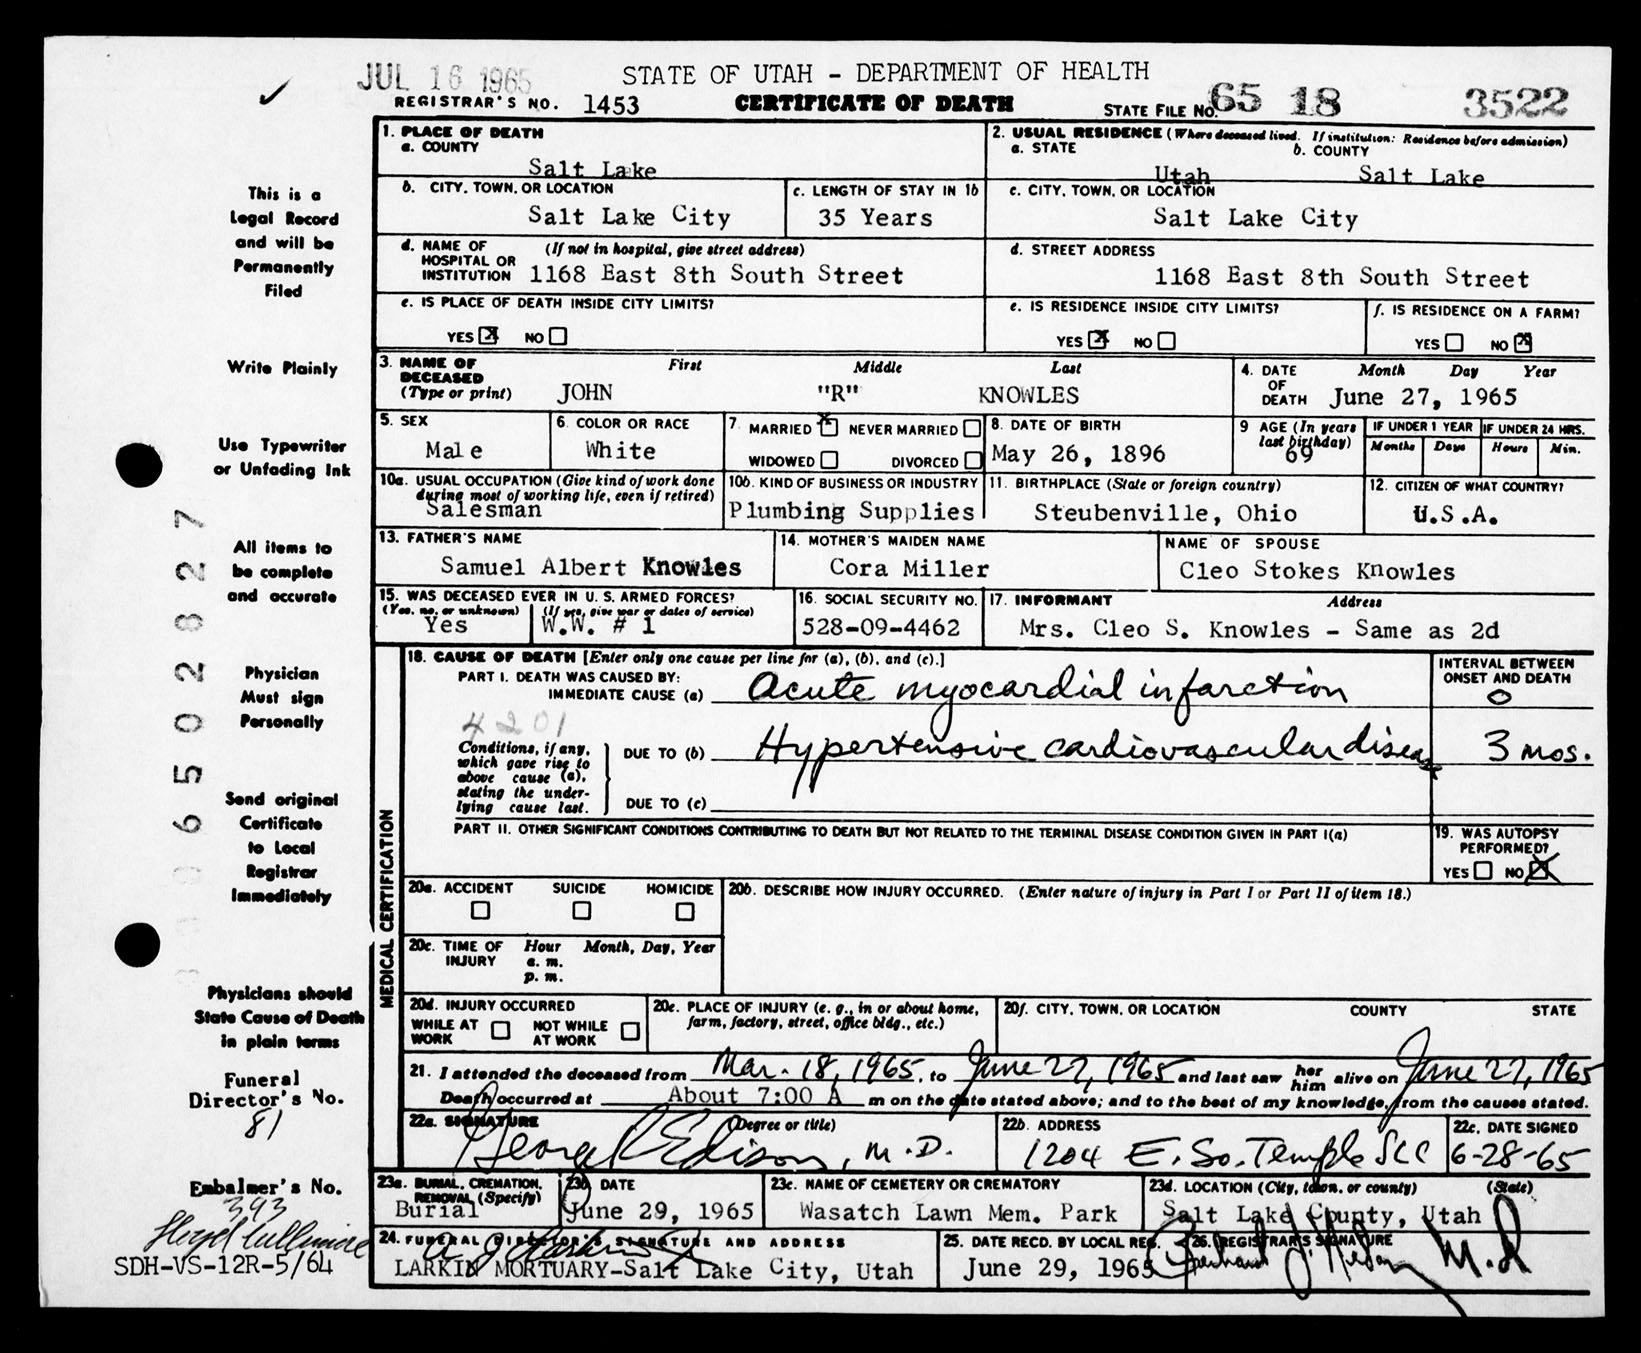 JUL 16 1965
STATE OF UTAH - DEPARTMENT OF HEALTH
REGISTRAR'S NO. 1453
CERTIFICATE OF DEATH
STATE FILE NO. 65 18 3522
1. PLACE OF DEATH
a. COUNTY
Salt Lake
2. USUAL RESIDENCE (Where deceased lived. If institution: Residence before admission)
a. STATE b. COUNTY
Utah Salt Lake
b. CITY, TOWN, OR LOCATION
Salt Lake City
c. LENGTH OF STAY IN 1b
35 Years
c. CITY, TOWN, OR LOCATION
Salt Lake City
d. NAME OF HOSPITAL OR INSTITUTION (If not in hospital, give street address)
1168 East 8th South Street
d. STREET ADDRESS
1168 East 8th South Street
e. IS PLACE OF DEATH INSIDE CITY LIMITS?
YES X NO
e. IS RESIDENCE INSIDE CITY LIMITS?
YES X NO
f. IS RESIDENCE ON A FARM?
YES NO X
3. NAME OF DECEASED (Type or print)
First Middle Last
JOHN "R" KNOWLES
4. DATE OF DEATH
Month Day Year
June 27, 1965
5. SEX
Male
6. COLOR OR RACE
White
7. MARRIED X NEVER MARRIED
WIDOWED DIVORCED
8. DATE OF BIRTH
May 26, 1896
9 AGE (In years last birthday)
69
IF UNDER 1 YEAR
Months Days
IF UNDER 24 HRS.
Hours Min.
10a. USUAL OCCUPATION (Give kind of work done during most of working life, even if retired)
Salesman
10b. KIND OF BUSINESS OR INDUSTRY
Plumbing Supplies
11. BIRTHPLACE (State or foreign country)
Steubenville, Ohio
12. CITIZEN OF WHAT COUNTRY?
U.S.A.
13. FATHER'S NAME
Samuel Albert Knowles
14. MOTHER'S MAIDEN NAME
Cora Miller
NAME OF SPOUSE
Cleo Stokes Knowles
15. WAS DECEASED EVER IN U. S. ARMED FORCES?
(Yes, no, or unknown) (If yes, give war or dates of service)
Yes W.W. # 1
16. SOCIAL SECURITY NO.
528-09-4462
17. INFORMANT Address
Mrs. Cleo S. Knowles - Same as 2d
MEDICAL CERTIFICATION
18. CAUSE OF DEATH [Enter only one cause per line for (a), (b), and (c).]
PART I. DEATH WAS CAUSED BY:
IMMEDIATE CAUSE (a) Acute myocardial infarction
INTERVAL BETWEEN ONSET AND DEATH
0
4201
Conditions, if any, which gave rise to above cause (a), stating the underlying cause last.
DUE TO (b) Hypertensive cardiovascular disease
3 mos.
DUE TO (c)
PART II. OTHER SIGNIFICANT CONDITIONS CONTRIBUTING TO DEATH BUT NOT RELATED TO THE TERMINAL DISEASE CONDITION GIVEN IN PART I(a)
19. WAS AUTOPSY PERFORMED?
YES NO X
20a. ACCIDENT SUICIDE HOMICIDE
20b. DESCRIBE HOW INJURY OCCURRED. (Enter nature of injury in Part I or Part II of item 18.)
20c. TIME OF INJURY Hour Month, Day, Year
a. m.
p. m.
20d. INJURY OCCURRED
WHILE AT WORK NOT WHILE AT WORK
20e. PLACE OF INJURY (e. g., in or about home, farm, factory, street, office bldg., etc.)
20f. CITY, TOWN, OR LOCATION COUNTY STATE
21. I attended the deceased from Mar. 18, 1965, to June 27, 1965 and last saw her him alive on June 27, 1965
Death occurred at About 7:00 A m on the date stated above; and to the best of my knowledge, from the causes stated.
22a. SIGNATURE (Degree or title)
George R Edison, M.D.
22b. ADDRESS
1204 E. So. Temple SLC
22c. DATE SIGNED
6-28-65
23a. BURIAL, CREMATION, REMOVAL (Specify)
Burial
23b. DATE
June 29, 1965
23c. NAME OF CEMETERY OR CREMATORY
Wasatch Lawn Mem. Park
23d. LOCATION (City, town, or county) (State)
Salt Lake County, Utah
24. FUNERAL DIRECTOR'S SIGNATURE AND ADDRESS
LARKIN MORTUARY-Salt Lake City, Utah
25. DATE RECD. BY LOCAL REG.
June 29, 1965
26. REGISTRAR'S SIGNATURE
M.D
This is a
Legal Record
and will be
Permanently
Filed
Write Plainly
Use Typewriter
or Unfading Ink
All items to
be complete
and accurate
Physician
Must sign
Personally
Send original
Certificate
to Local
Registrar
Immediately
Physicians should
State Cause of Death
in plain terms
Funeral
Director's No.
81
Embalmer's No.
393
SDH-VS-12R-5/64